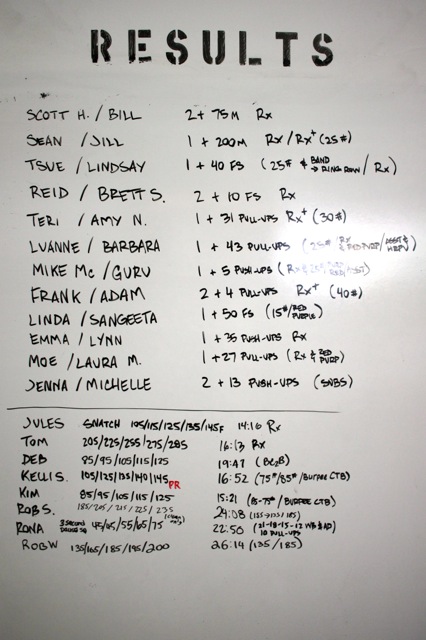 RESULTS
SCOTT H. / BILL 2 + 75M Rx
SEAN / JILL 1 + 200M Rx/Rx+ (25#)
TSUE / LINDSAY 1 + 40 FS (25# & BAND → RING ROW / Rx)
REID / BRETT S. 2 + 10 FS Rx
TERI / AMY N. 1 + 31 PULL-UPS Rx+ (30#)
LVANNE / BARBARA 1 + 43 PULL-UPS
MIKE MC / GURU 1 + 5 PUSH-UPS
FRANK / ADAM 2 + 4 PULL-UPS Rx+ (40#)
LINDA / SANGEETA 1 + 50 FS (15#/RED PURPLE)
EMMA / LYNN 1 + 35 PUSH-UPS Rx
MOE / LAURA M. 1 + 27 PULL-UPS (Rx & RED PURP)
JENNA / MICHELLE 2 + 13 PUSH-UPS (SNBS)
JULES SNATCH 105/115/125/135/145F 14:10 Rx
TOM 205/225/255/275/285 16:13 Rx
DEB 85/95/105/115/125 19:47 (BC2B)
KELLIS. 105/125/135/140/145 PR 16:52 (75#/85#/BURPEE CTB)
KIM 85/95/105/115/125 15:21 (65-75#/BURPEE CTB)
ROB S. 185/205/215/225/235 24:08
RONA 3 SECOND PAUSE SQ 45/65/55/65/75 22:50 (21-18-15-12 WB &AD 10 PULL-UPS
ROB W 135/165/185/195/200 26:14 (135/185)